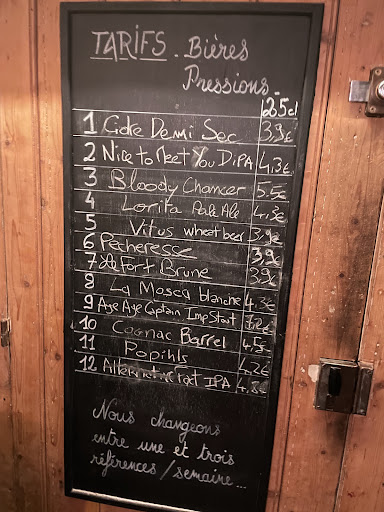 TARIFS. Bières
Pressions.
25cl
1 Cidre Demi Sec 3,9€
2 Nice to Meet You DIPA 4,3€
3 Bloody Chancer 5.5€
4 Lorita Pale Ale 4,3€
5 Vitus wheat beer 3,9€
6 Pecheresse 3,9€
7 Fort Brune 3,9€
8 La Mosca blanche 4,3€
9 Aye Aye Captain Imp Stout
10 Cognac Barrel 4,5€
11 4,2€
12 IPA 4,8€
Nous changeons
entre une et trois
références/semaine...